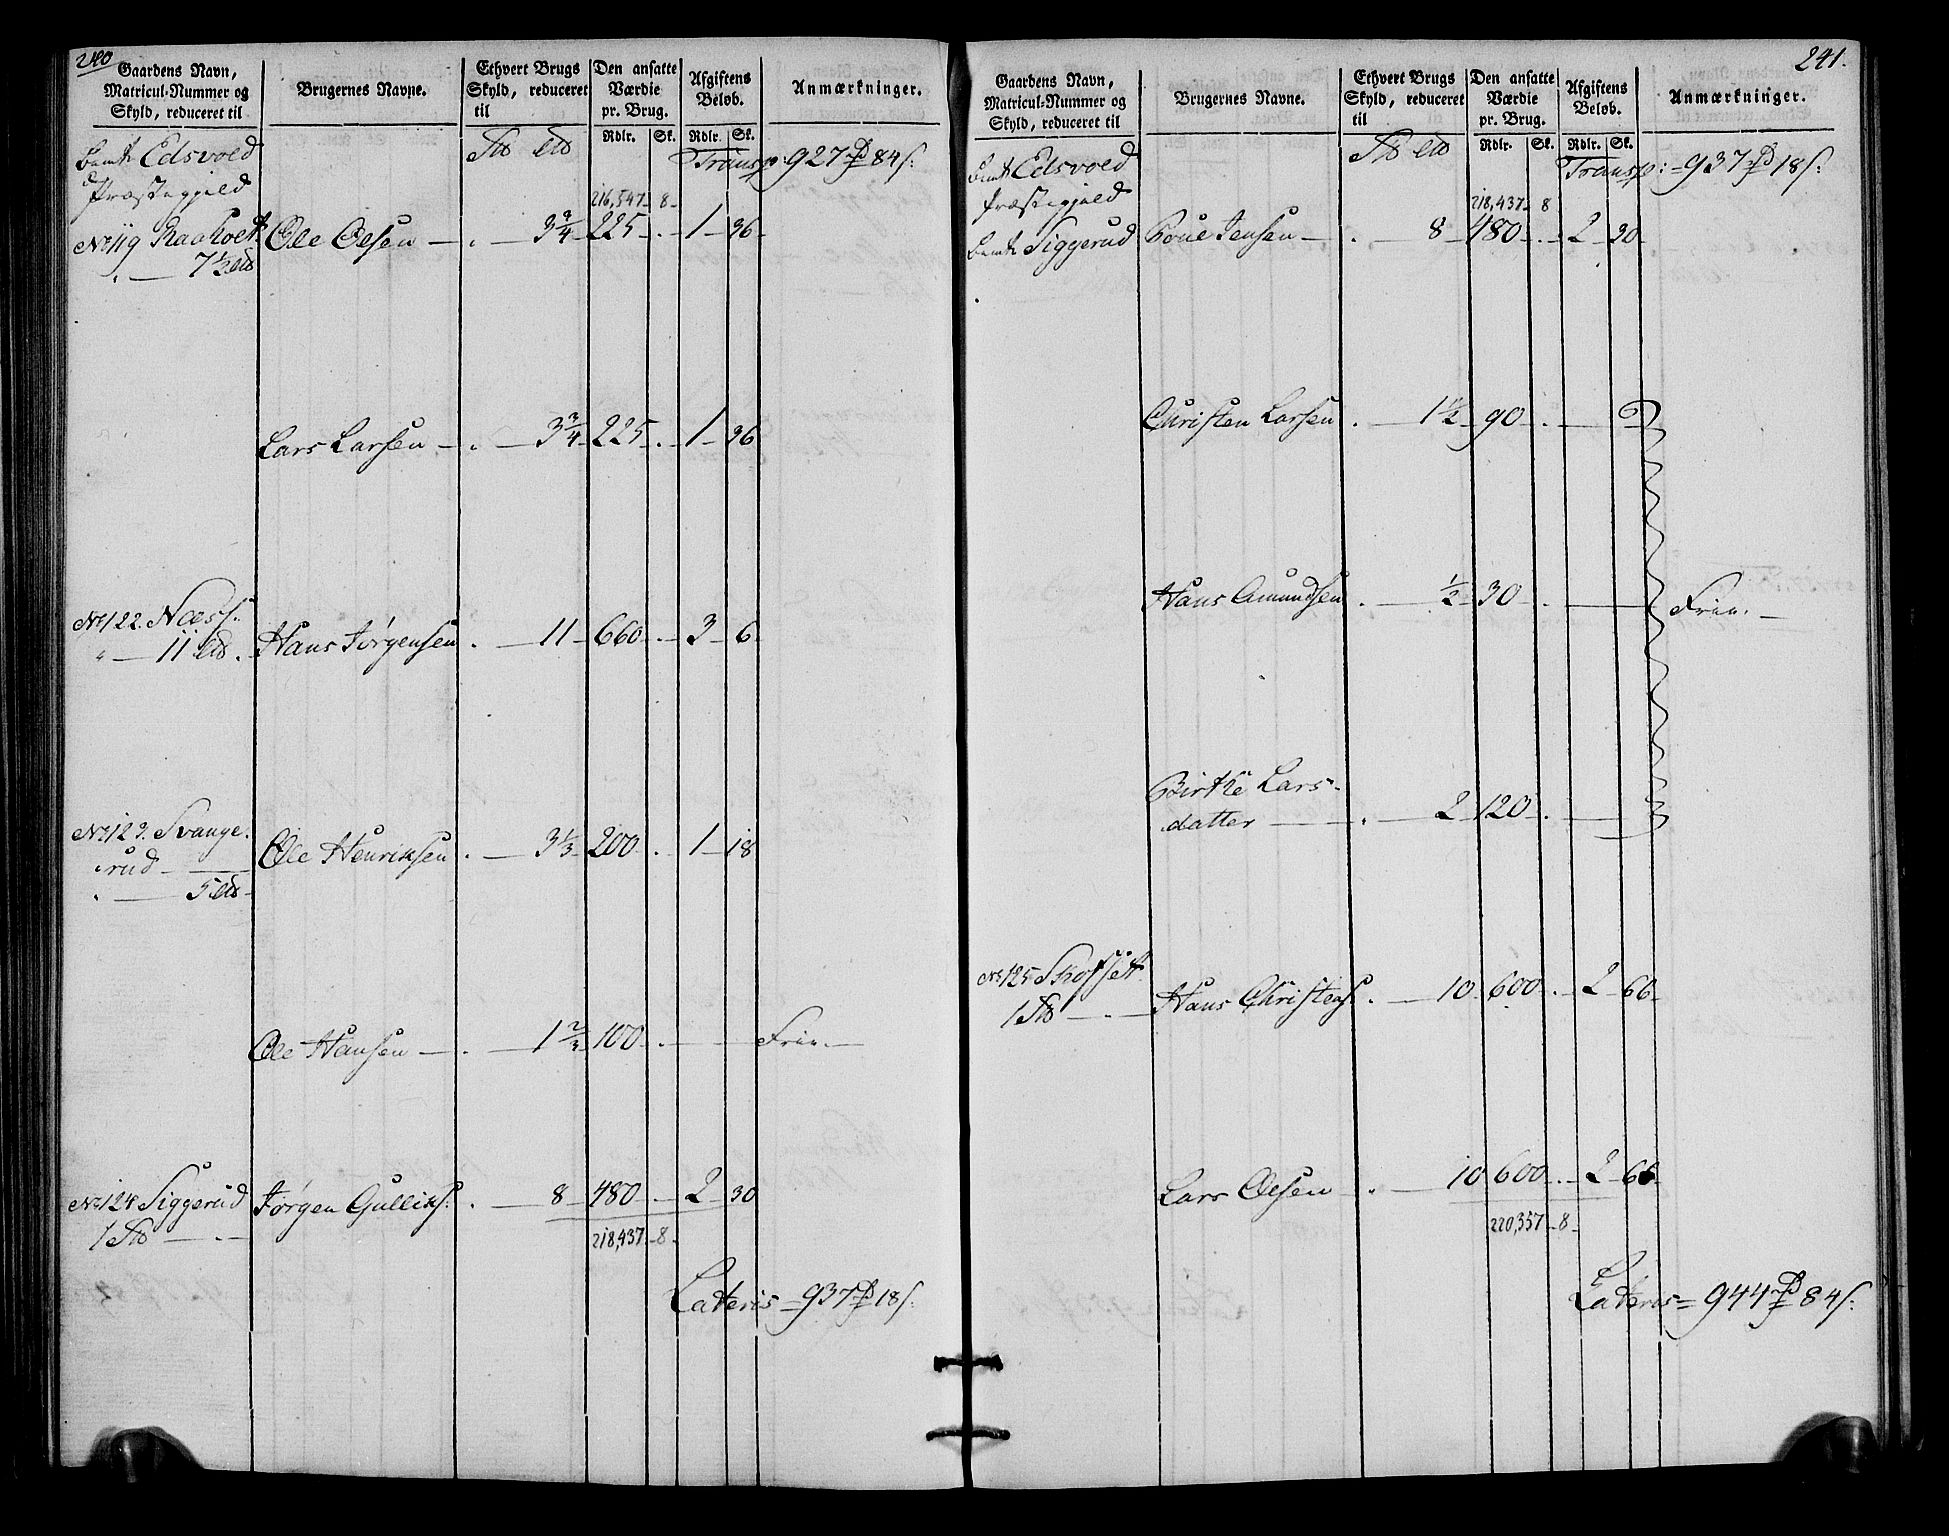 240
Gaardens Navn, Matricul-Nummer og Skyld, reduceret til
Brugernes Navne.
Ethvert Brugs Skyld, reduceret til
Den ansatte Værdie pr. Brug.
Rdlr. Sk.
Afgiftens Beløb.
Rdlr. Sk.
Anmærkninger.
Edsvold
Transp: 927 84 s:
Præstegjæld
216,547 - 8 -
No 119 Raaholt Ole Olsen — . — 3 3/4 - 225 - . - 1 - 36 -
7 1/2
Lars Larsen — . — 3 3/4 - 225 - . - 1 - 36 -
No 122. Næss.
" — 11 Hans Jørgensen . — 11 - 660 - . - 3 - 6 -
No 123. Svange-
rud — Ole Henriksen . — 3 1/3 - 200 - . - 1 - 18
" — 5
Ole Hansen — . — 1 2/3 - 100 - . — Frie. —
No 124 Siggerud Jørgen Gulliks: . — 8 - 480 - . - 2 - 30
1
218,437 - 8 -
Lateris = 937 18 s:
241.
Gaardens Navn, Matricul-Nummer og Skyld, reduceret til
Brugernes Navne.
Ethvert Brugs Skyld, reduceret til
Den ansatte Værdie pr. Brug.
Rdlr. Sk.
Afgiftens Beløb.
Rdlr. Sk.
Anmærkninger.
Edsvold
Transp: = 937 18 s:
Præstegjæld
218,437 - 8
Siggerud Poul Jensen — . — 8 - 480 - . - 2 - 30 -
Christen Larsen . — 1 1/2 - 90 - . —
Hans Amundsen . — 1/2 - 30 - . — Frie. —
Birthe Lars-
datter — . — 2 - 120 - . —
No 125 Skofsett
1 Hans Christens: . — 10 - 600 - . - 2 - 66 -
Lars Olsen — . — 10 - 600 - . - 2 - 66 -
220,357 - 8 -
Lateris = 944 84 s: